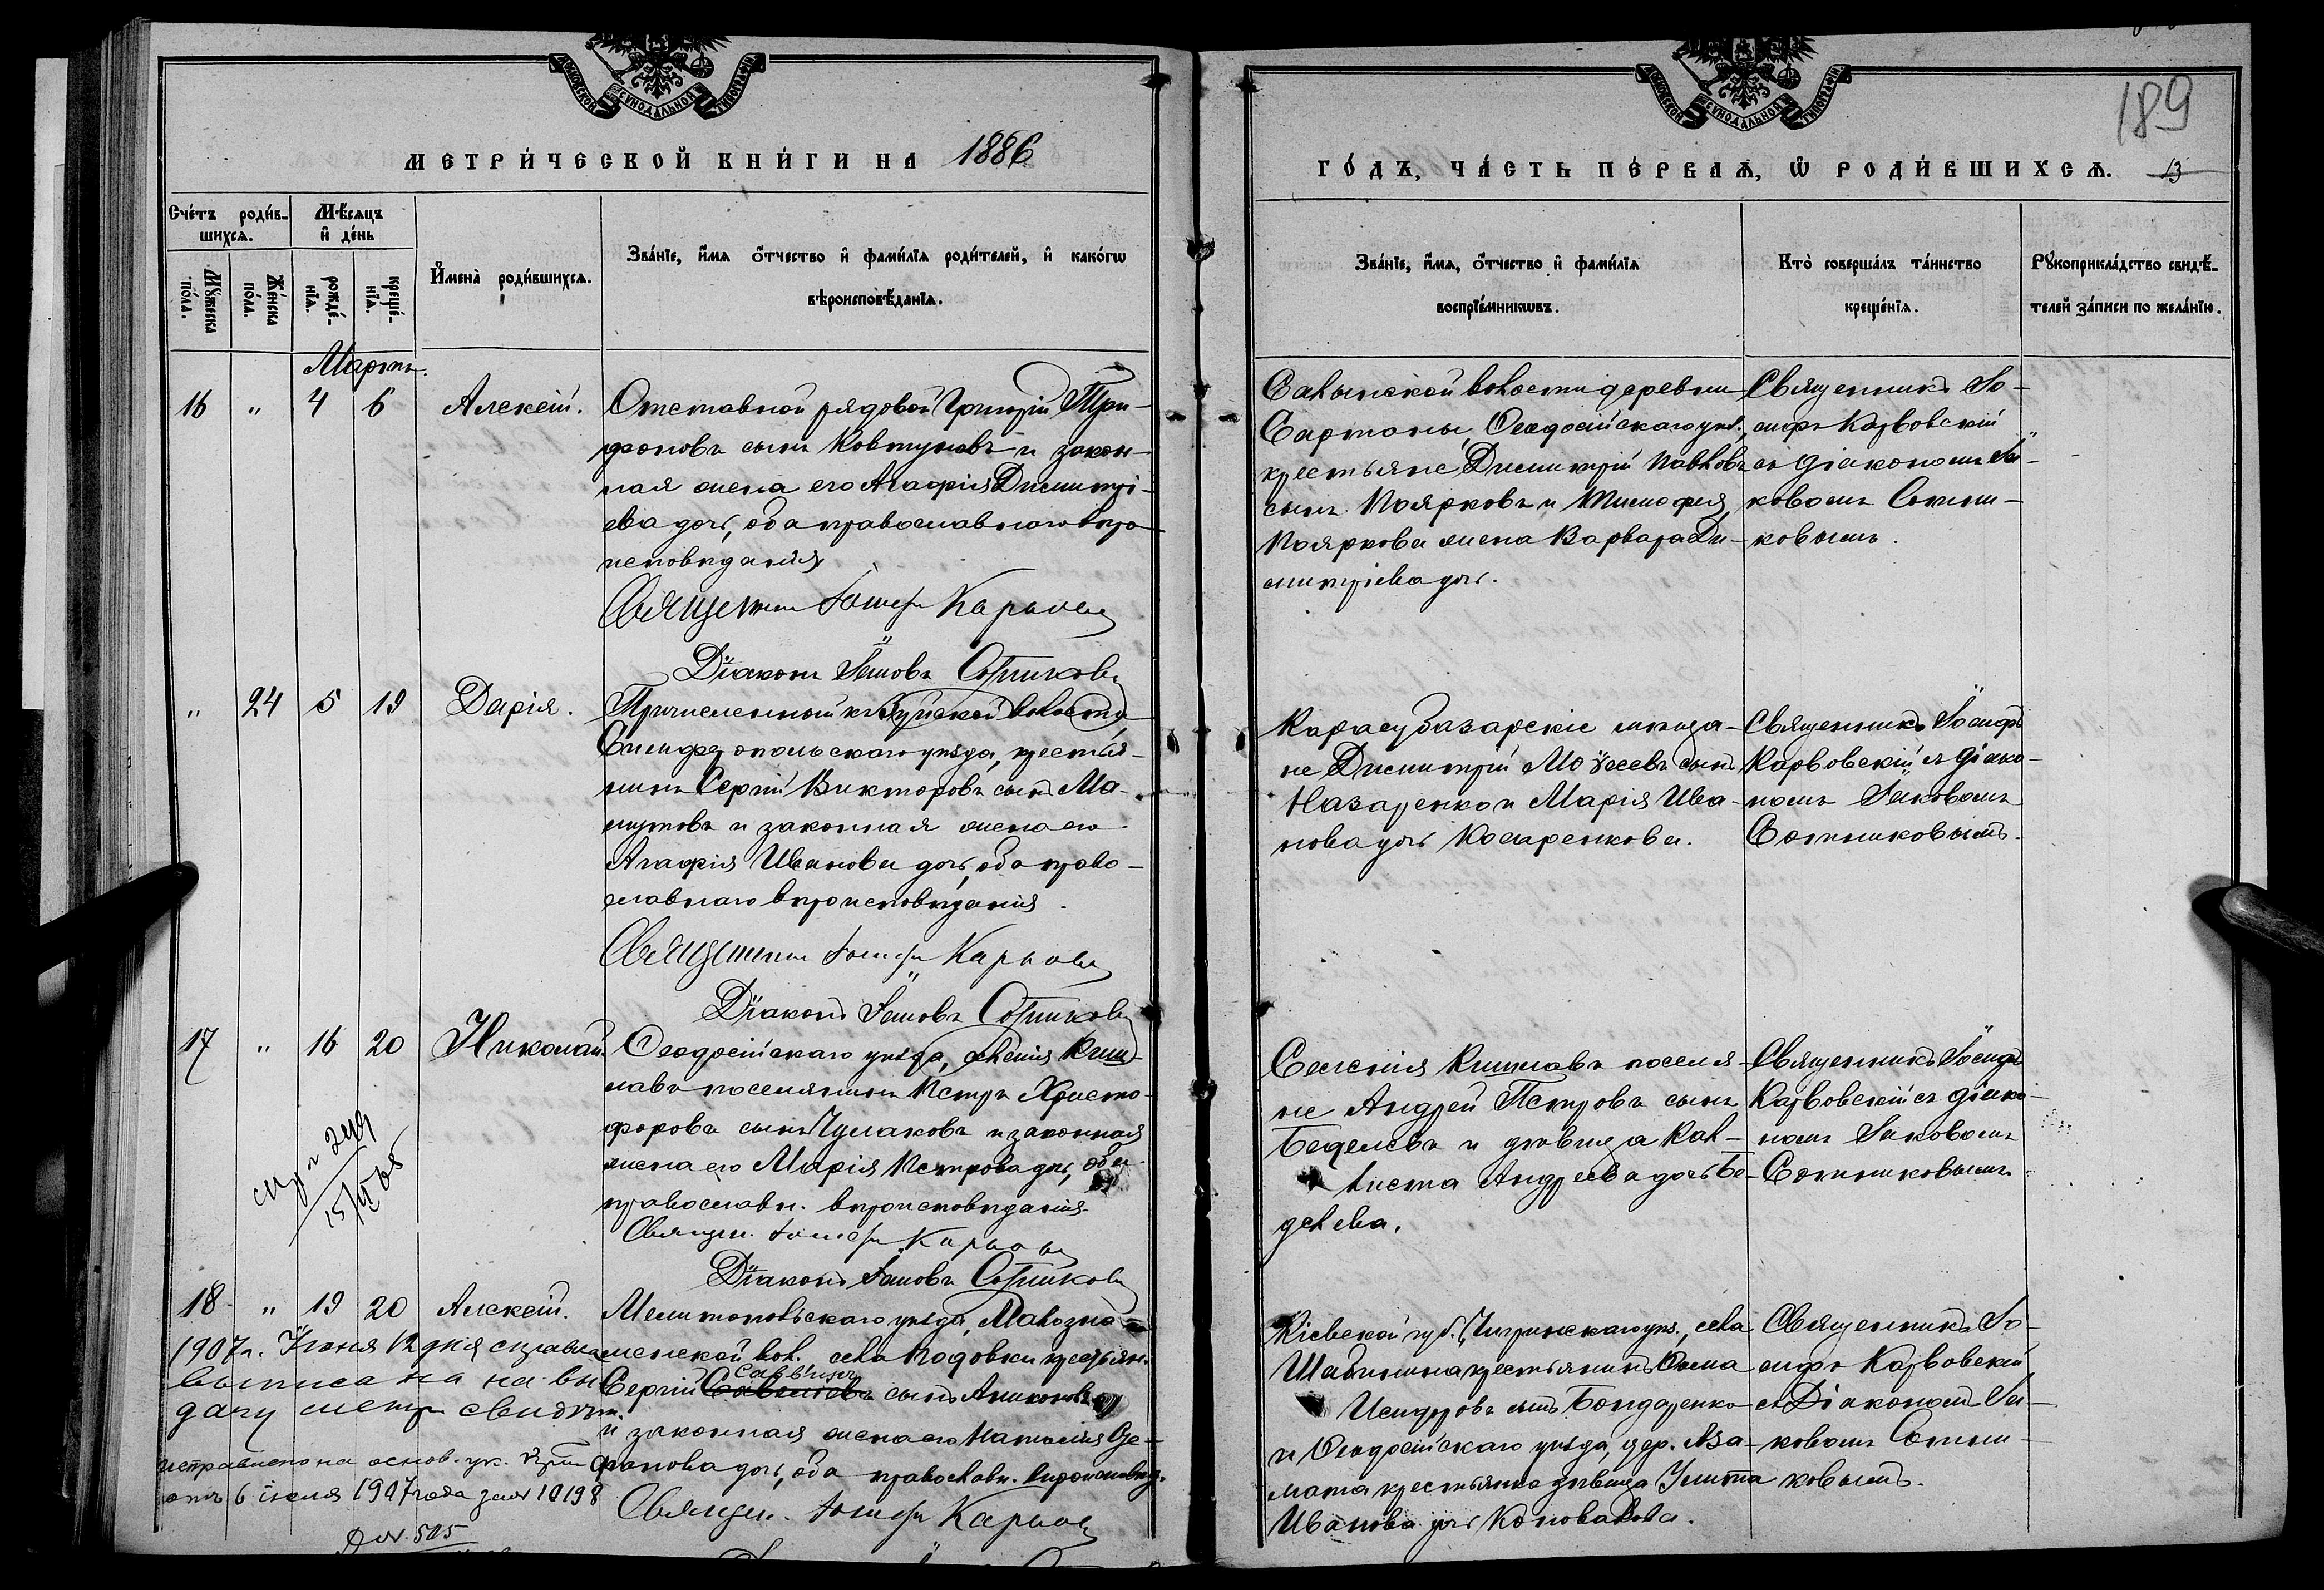 МЕТРИ́ЧЕСКОЙ КНИ́ГИ НА 1886
ГО́ДЪ, ЧА́СТЬ ПЕ́РВАѦ, Ѡ РОДИ́ВШИХСѦ. 13
189
Сче́тъ роди́в-
шихсѧ.
Мѣ́сѧцъ
и де́нь
Мꙋжеска по́ла.
Же́нска по́ла.
рожде́-
нїѧ.
креще́-
нїѧ.
И҆мена̀ роди́вшихсѧ.
Зва́нїе, и҆мѧ ѻ҆тчество и҆ фами́лїѧ роди́телей, и҆ како́гѡ
вѣроисповѣ́данїѧ.
Зва́нїе, и҆мѧ, ѻ҆тчество и҆ фами́лїѧ
воспрїе́мникѡвъ.
Кто̀ соверша́лъ та́инство
креще́нїѧ.
Рꙋкоприкла́дство свидѣ́-
телей за́писи по жела́нїю.
Мартъ.
16 " 4 6 Алексій.
Отставной рядовой Григорій Три-
фоновъ сынъ Ковтуновъ и закон-
ная жена его Агафія Димитрі-
ева дочь, оба православнаго вѣро
исповѣданія
Священникъ Іосифъ Карвовскій
Діаконъ Іаковъ Сотниковъ
Салынской волости деревни
Сартаны, Ѳеодосійскаго уѣз.,
крестьяне Димитрій Павловъ
сынъ Поярковъ и Тимофея
Пояркова жена Варвара Ди-
митріева дочь.
Священникъ Іо-
сифъ Карвовскій
съ діакономъ Іа-
ковомъ Сотни-
ковымъ.
" 24 5 19 Дарія.
Причисленный къ Зуйской волости,
Симферопольскаго уѣзда, крестья-
нинъ Сергій Викторовъ сынъ Ма-
мутовъ и законная жена его
Агафія Иванова дочь, оба право-
славнаго вѣроисповѣданія.
Священникъ Іосифъ Карвовскій
Діаконъ Іаковъ Сотниковъ
Карасубазарскіе мѣща-
не Димитрій Моѵсеевъ сынъ
Назаренко и Марія Ива-
нова дочь Косаренкова.
Священникъ Іосифъ
Карвовскій съ діако-
номъ Іаковомъ
Сотниковымъ.
17 " 16 20 Николай.
Ѳеодосійскаго уѣзда, селенія Киш-
лавъ поселянинъ Петръ Христо-
форовъ сынъ Чумаковъ и законная
жена его Марія Петрова дочь, оба
православн. вѣроисповѣданія.
Священ. Іосифъ Карвовскій
Діаконъ Іаковъ Сотниковъ
Селенія Кишлавъ поселя-
не Андрей Петровъ сынъ
Беделевъ и дѣвица Кал-
листа Андреева дочь Бе-
делева.
Священникъ Іосифъ
Карвовскій съ діако-
номъ Іаковомъ
Сотниковымъ.
18 " 19 20 Алексій.
Мелитопольскаго уѣзда, Малозна-
менской вол. села Подовки крестьян.
Саввинъ
Сергій Савельевъ сынъ Аникановъ
и законная жена его Наталия Сте-
фанова дочь, оба православн. вѣроисповѣд.
Священ. Іосифъ Карвовскій
Кіевской губ., Чигринскаго уѣз., села
Шабинина крестьянинъ Ѳома
Исидоровъ сынъ Бондаренко
и Ѳеодосійскаго уѣзда, дер. Аза-
мата крестьянка дѣвица Улита
Иванова дочь Коновалова.
Священникъ Іо-
сифъ Карвовскій
съ Діакономъ Іа-
ковомъ Сотни-
ковымъ.
1907 г. Іюня 12 дня справка
выписана на вы
дачу метр свидѣт.
исправлено на основ. ук.
отъ 6 іюля 1907 года за № 10198
№ 505